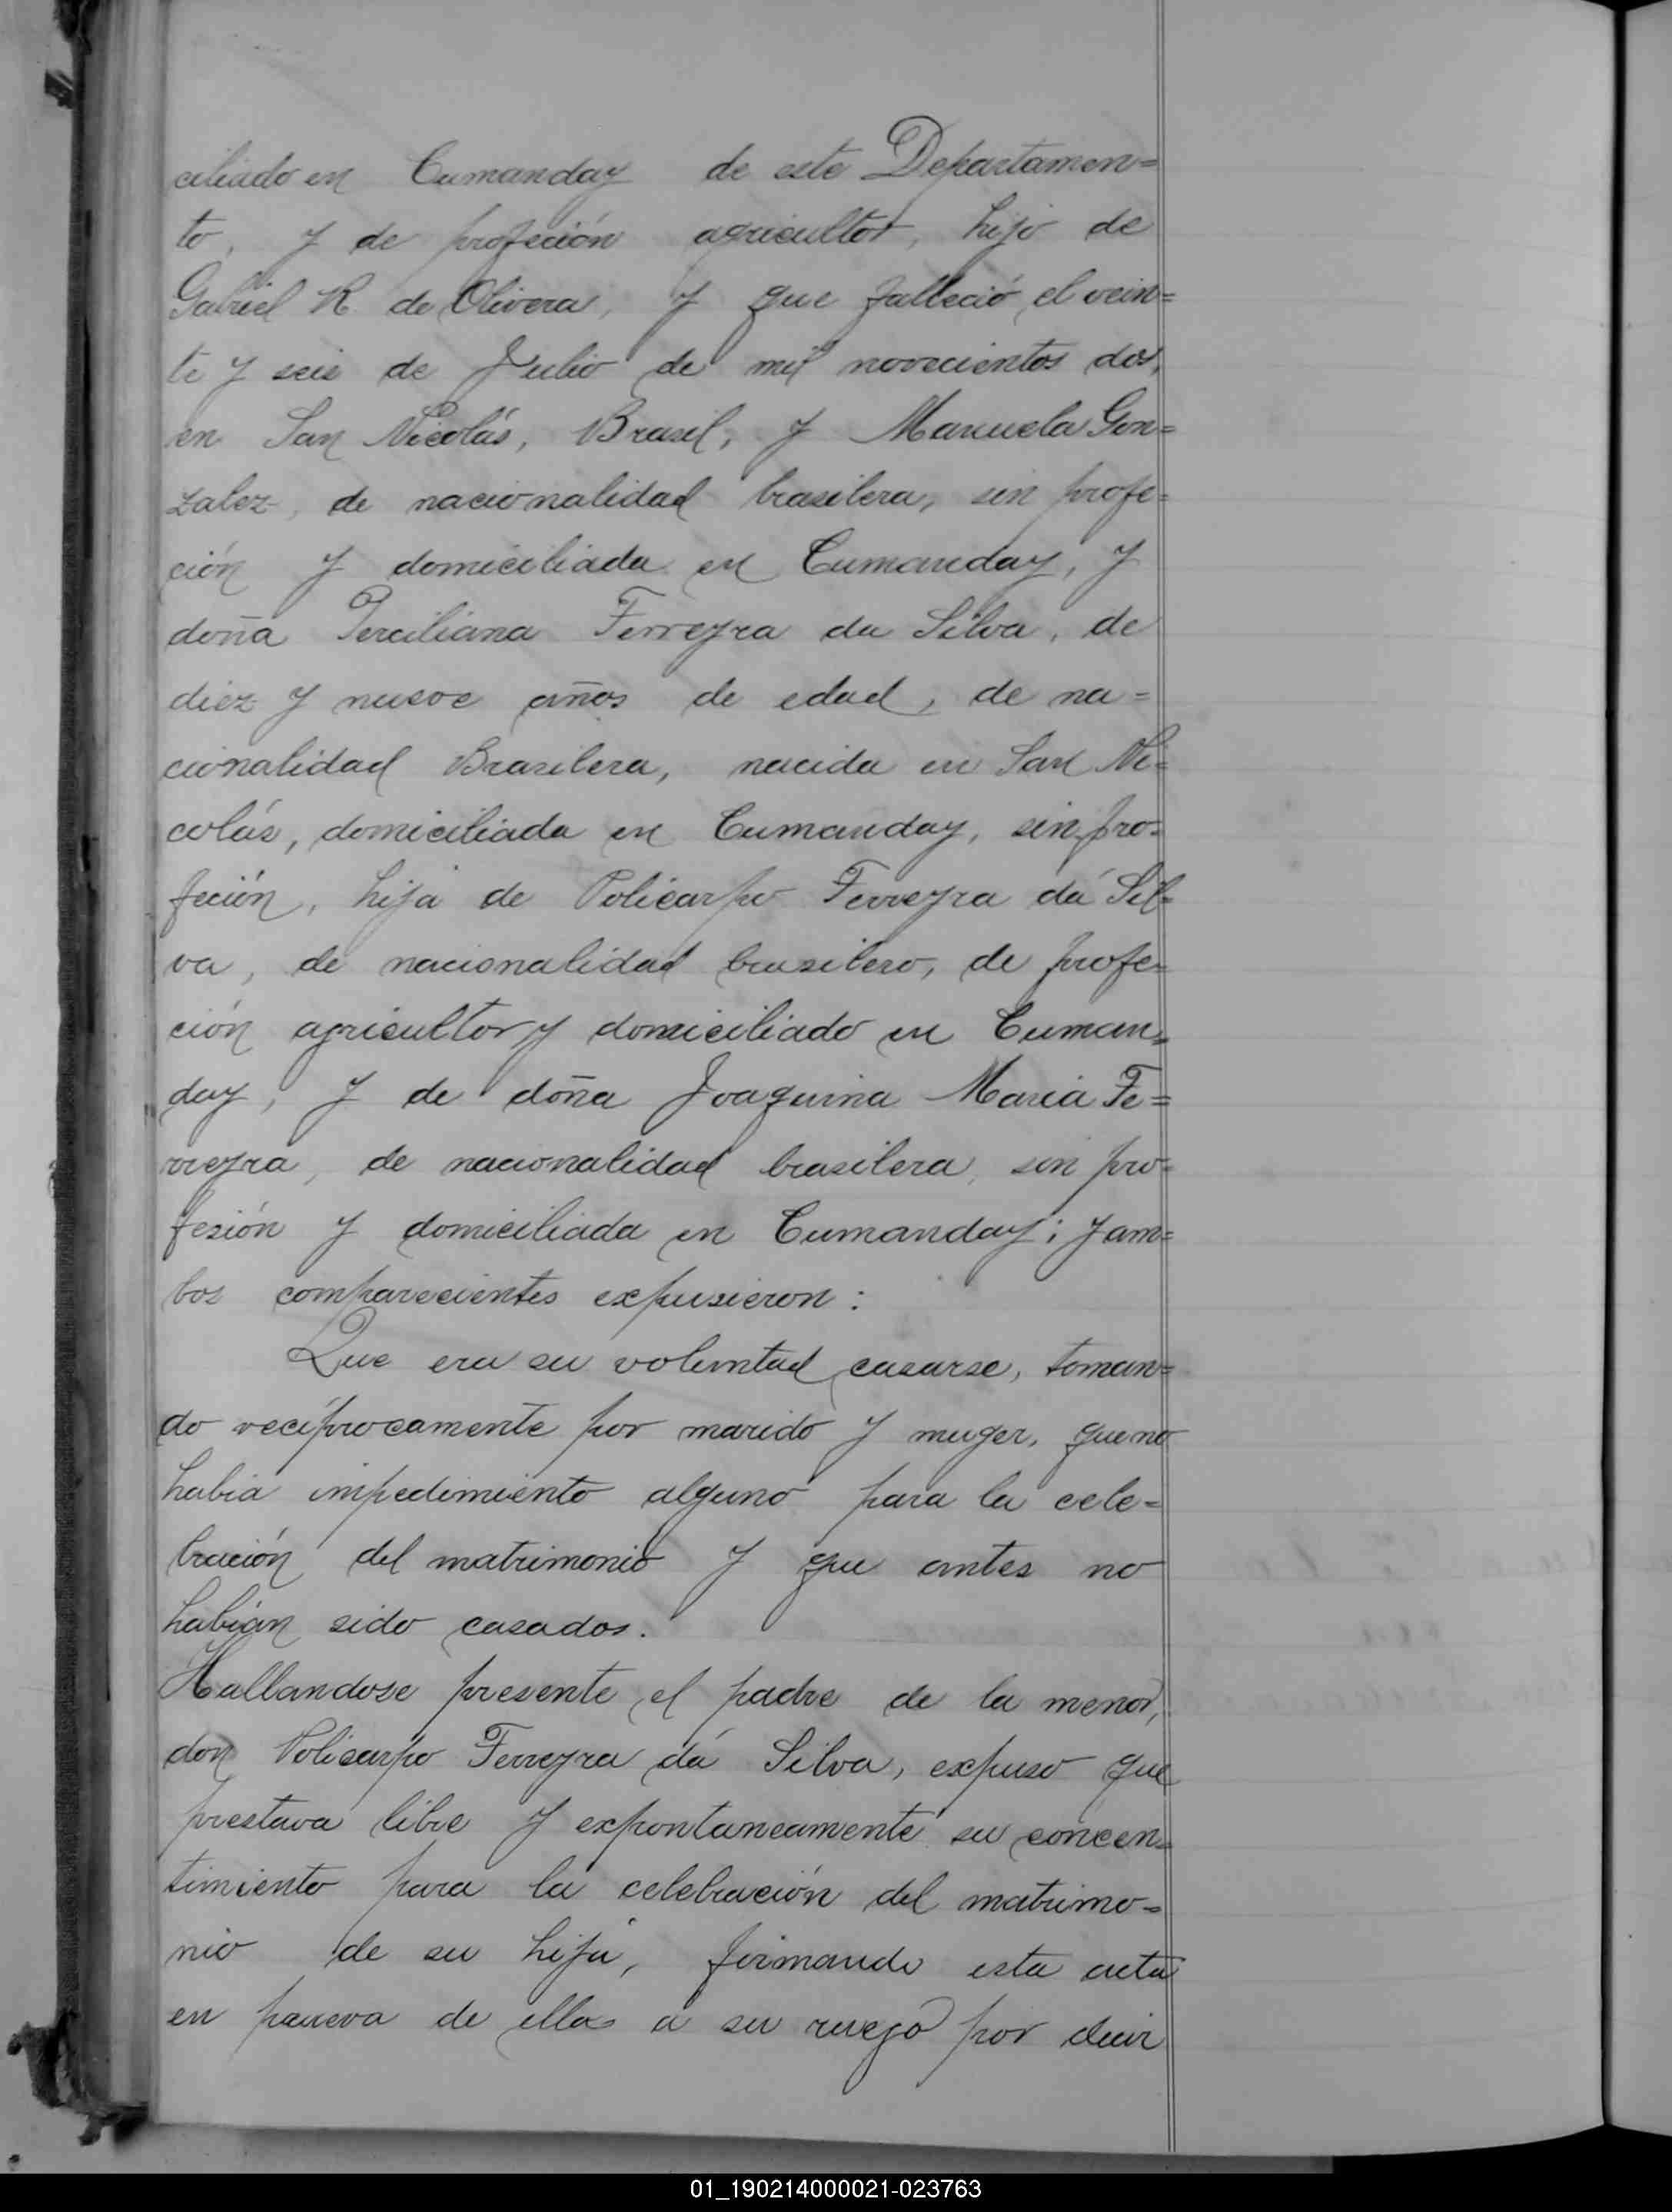 ciliado en Cumanday de este Departamen=
to, y de profeción agricultor, hijo de
Gabriel R. de Olivera, y que falleció el vein=
te y seis de Julio de mil novecientos dos,
en San Nicolás, Brasil, y Manuela Gon=
zalez, de nacionalidad brasilera, sin profe=
ción y domiciliada en Cumanday, y
doña Perciliana Ferreyra da Silva, de
diez y nueve años de edad, de na=
cionalidad Brasilera, nacida en San Ni=
colás, domiciliada en Cumanday, sin pro=
feción, hija de Policarpo Ferreyra dá Sil=
va, de nacionalidad brasilero, de profe=
ción agricultor y domiciliado en Cuman=
day, y de doña Joaquina Maria Fe=
rreyra, de nacionalidad brasilera, sin pro=
fesión y domiciliada en Cumanday; y am=
bos comparecientes expusieron:
Que era su voluntad casarse, toman=
do recíprocamente por marido y muger, que no
habia impedimiento alguno para la cele=
bración del matrimonio y que antes no
habian sido casados.
Hallandose presente el padre de la menor,
don Policarpo Ferreyra dá Silva, expuso que
prestava libre y expontaneamente su concen=
timiento para la celebración del matrimo=
nio de su hija, firmando esta acta
en prueva de ello a su ruego por decir
01_190214000021-023763